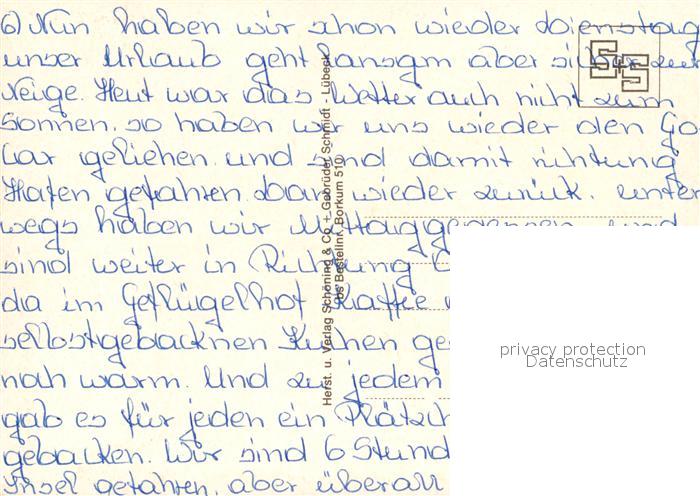 6) Nun haben wir schon wieder doienstag
unser Urlaub geht lansgm aber sicher zur
Neige. Heut war das Wetter auch nicht zum
Sonnen. so haben wir uns wieder den Go
Car geliehen. und sind damit richtung
Hafen gefahren. dann wieder zurück. unter
wegs haben wir Mittaggegessen. und
sind weiter in Richtung
da im Geflügelhof Kaffee
selbstgebacknen Kuchen
noch warm. Und zu jedem
gab es für jeden ein Plätzch
gebacken. Wir sind 6 Stund
Insel gefahren. aber überall
S+S
Herst. u. Verlag Schöning & Co + Gebrüder Schmidt - Lübeck
bs Bestellnr. Borkum 510
privacy protection
Datenschutz